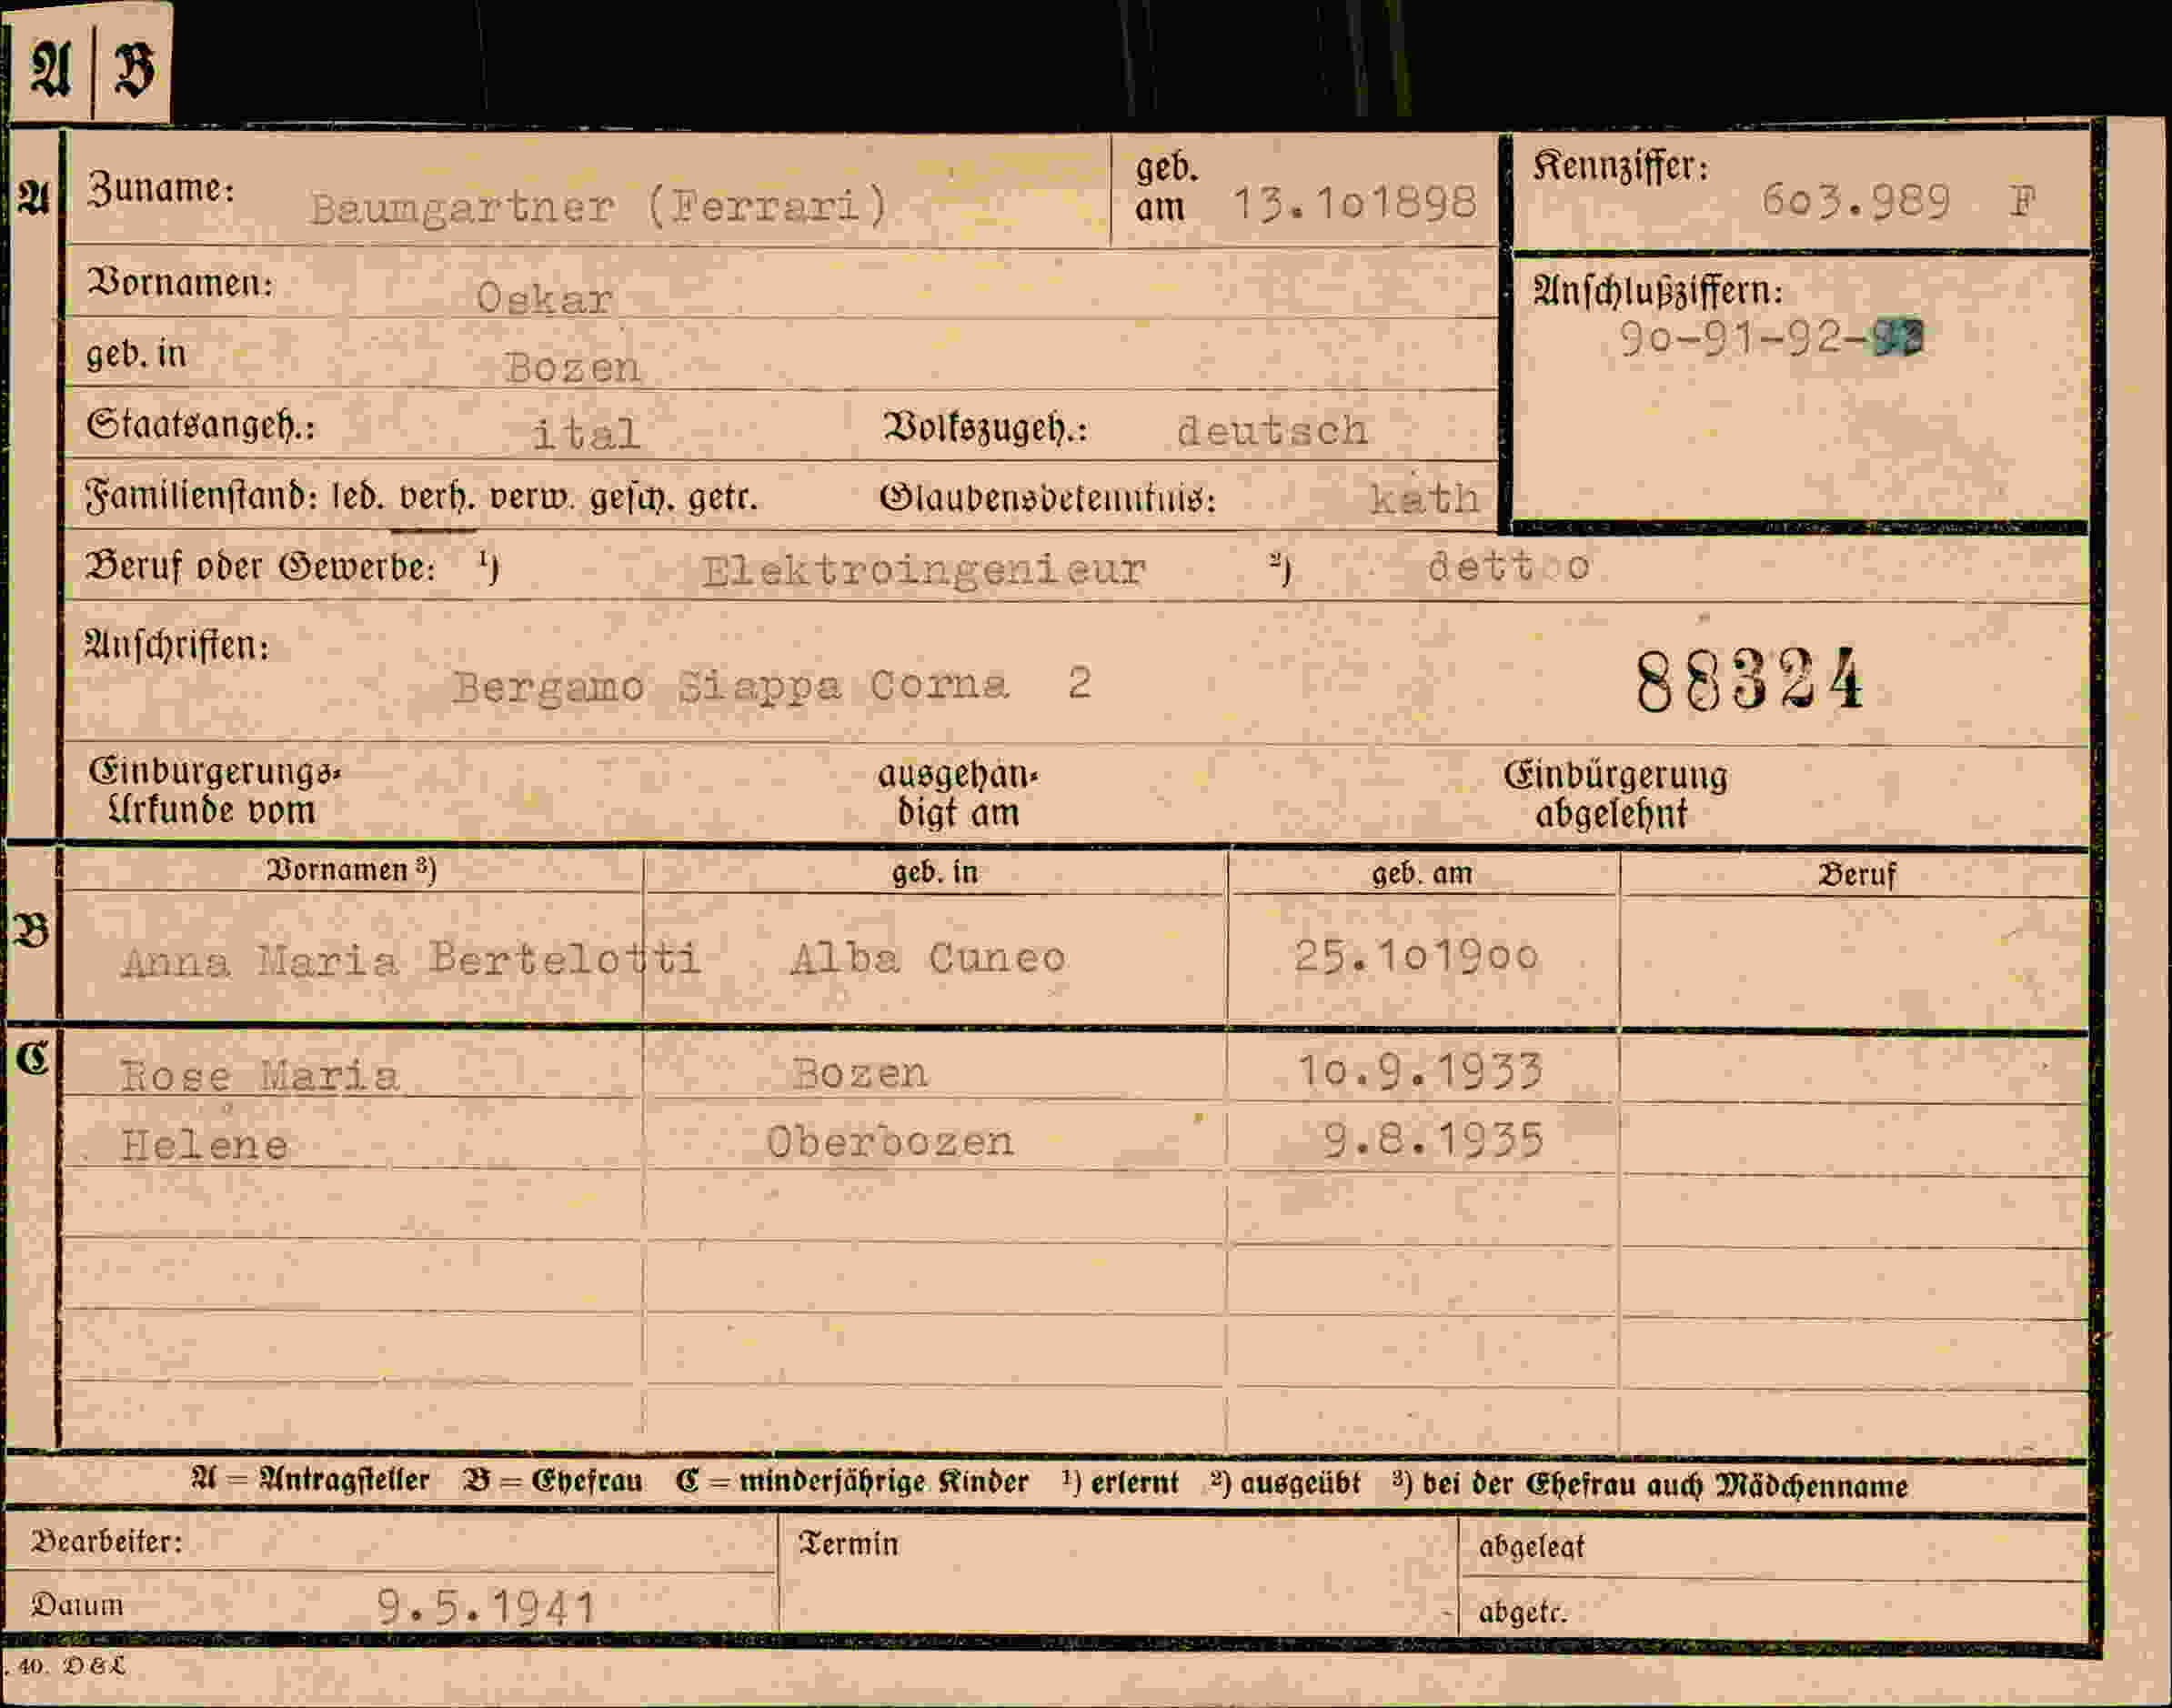 A | B
A Zuname: Baumgartner (Ferrari) geb. am 13.1o1898 Kennziffer: 6o3.989 F
Vornamen: Oskar Anschlußziffern:
9o-91-92-
geb. in Bozen
Staatsangeh.: ital Volkszugeh.: deutsch
Familienstand: led. verh. verw. gesch. getr. Glaubensbekenntnis: kath
Beruf oder Gewerbe: ¹) Elektroingenieur ²) dett o
Anschriften: 88324
Bergamo Siappa Corna 2
Einbürgerungs- ausgehän- Einbürgerung
Urkunde vom digt am abgelehnt
Vornamen ³) geb. in geb. am Beruf
B Anna Maria Bertelotti Alba Cuneo 25.1o19oo
C Rose Maria Bozen 1o.9.1933
Helene Oberbozen 9.8.1935
A = Antragsteller B = Ehefrau C = minderjährige Kinder ¹) erlernt ²) ausgeübt ³) bei der Ehefrau auch Mädchenname
Bearbeiter: Termin abgelegt
Datum 9.5.1941 abgetr.
. 40. D & L